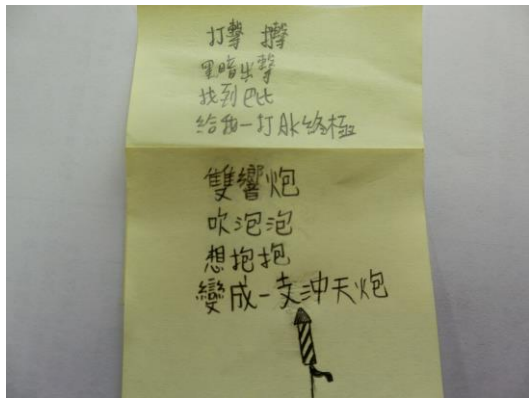 打擊 撞擊
黑暗出擊
找到巴比
給我一打AK終極
雙響炮
吹泡泡
想抱抱
變成一支沖天炮